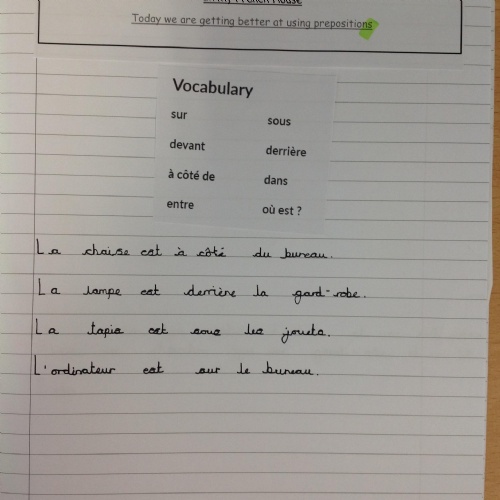 French House
Today we are getting better at using prepositions
Vocabulary
sur sous
devant derrière
à côté de dans
entre où est ?
La chaise est à côté du bureau.
La lampe est derrière la gard-robe.
La tapis est sous les jouets.
L'ordinateur est sur le bureau.